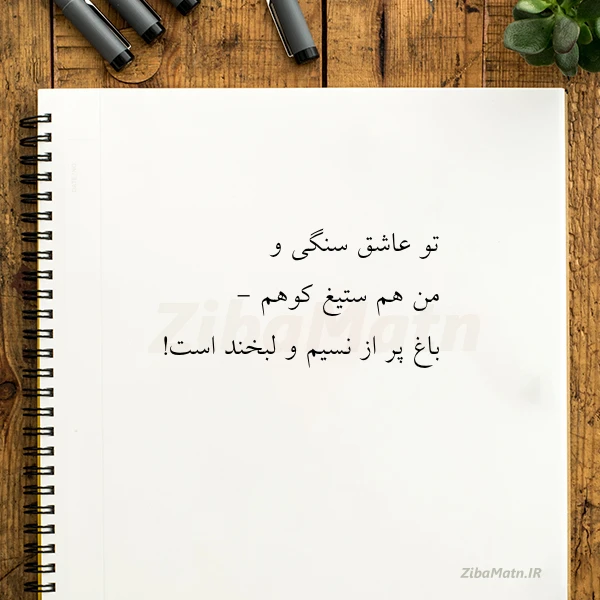 تو عاشق سنگی و
من هم ستیغ کوهم -
باغ پر از نسیم و لبخند است!
ZibaMatn
ZibaMatn.IR